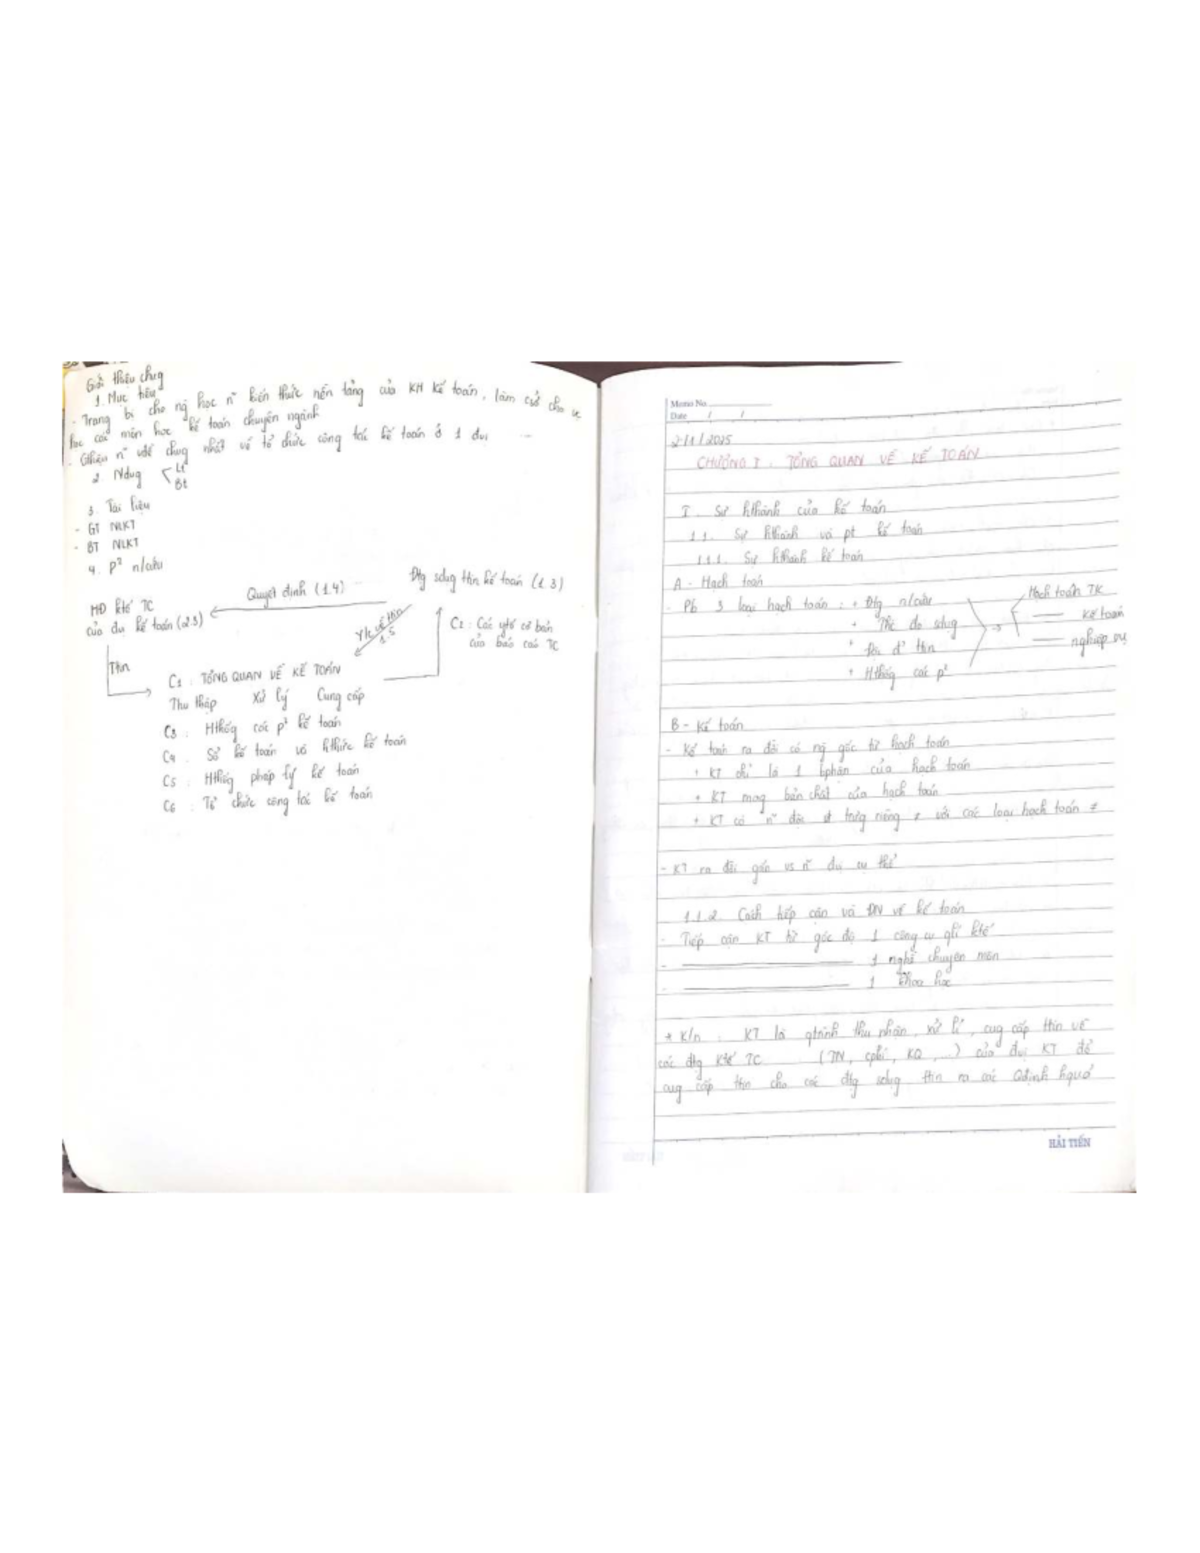 Giới thiệu chug
1. Mục tiêu
- Trang bị cho ng học n~ kiến thức nền tảng của KH kế toán, làm csở cho vc
học các môn học kế toán chuyên ngành
- Gthiệu n~ vđề chug nhất về tổ chức công tác kế toán ở 1 đvị
2 Ndug
Lt
Bt
3. Tài liệu
- GT NLKT
- BT NLKT
4. P² n/cứu
HĐ ktế TC
của đv kế toán (2.3)
Quyết định (1.4)
Đtg sdug ttin kế toán (1.3)
Y/c về ttin
1.5
C2 : Các ytố cơ bản
của báo cáo TC
Ttin
C1 : TỔNG QUAN VỀ KẾ TOÁN
Thu thập Xử lý Cung cấp
C3 : Hthống các p² kế toán
C4 : Sổ kế toán và hthức kế toán
C5 : Hthống pháp lý kế toán
C6 : Tổ chức công tác kế toán
Memo No.
Date / /
2/1/2025
CHƯƠNG I : TỔNG QUAN VỀ KẾ TOÁN
I. Sự hthành của kế toán
1.1. Sự hthành và pt kế toán
1.1.1. Sự hthành kế toán
A - Hạch toán
- Pb 3 loại hạch toán : + Đtg n/cứu
+ Thc đo sdug
+ ttin
+ Hthống các p²
Hạch toán TK
kế toán
nghiệp vụ
B - Kế toán
- Kế toán ra đời có ng gốc từ hạch toán
+ KT chỉ là 1 bphận của hạch toán
+ KT mag bản chất của hạch toán
+ KT có n~ đặc trưng riêng ≠ với các loại hạch toán ≠
- KT ra đời gắn vs n~ đvị cụ thể
1.1.2 Cách tiếp cận và ĐN về kế toán
- Tiếp cận KT từ góc độ 1 công cụ qlí ktế
- 1 nghề chuyên môn
- 1 khoa học
* K/n : KT là qtrình thu nhận, xử lí, cug cấp ttin về
các đtg ktế TC (TN, cphí, KQ,...) của đvị KT để
cug cấp ttin cho các đtg sdụg ttin ra các Qđịnh hquả
HẢI TIẾN